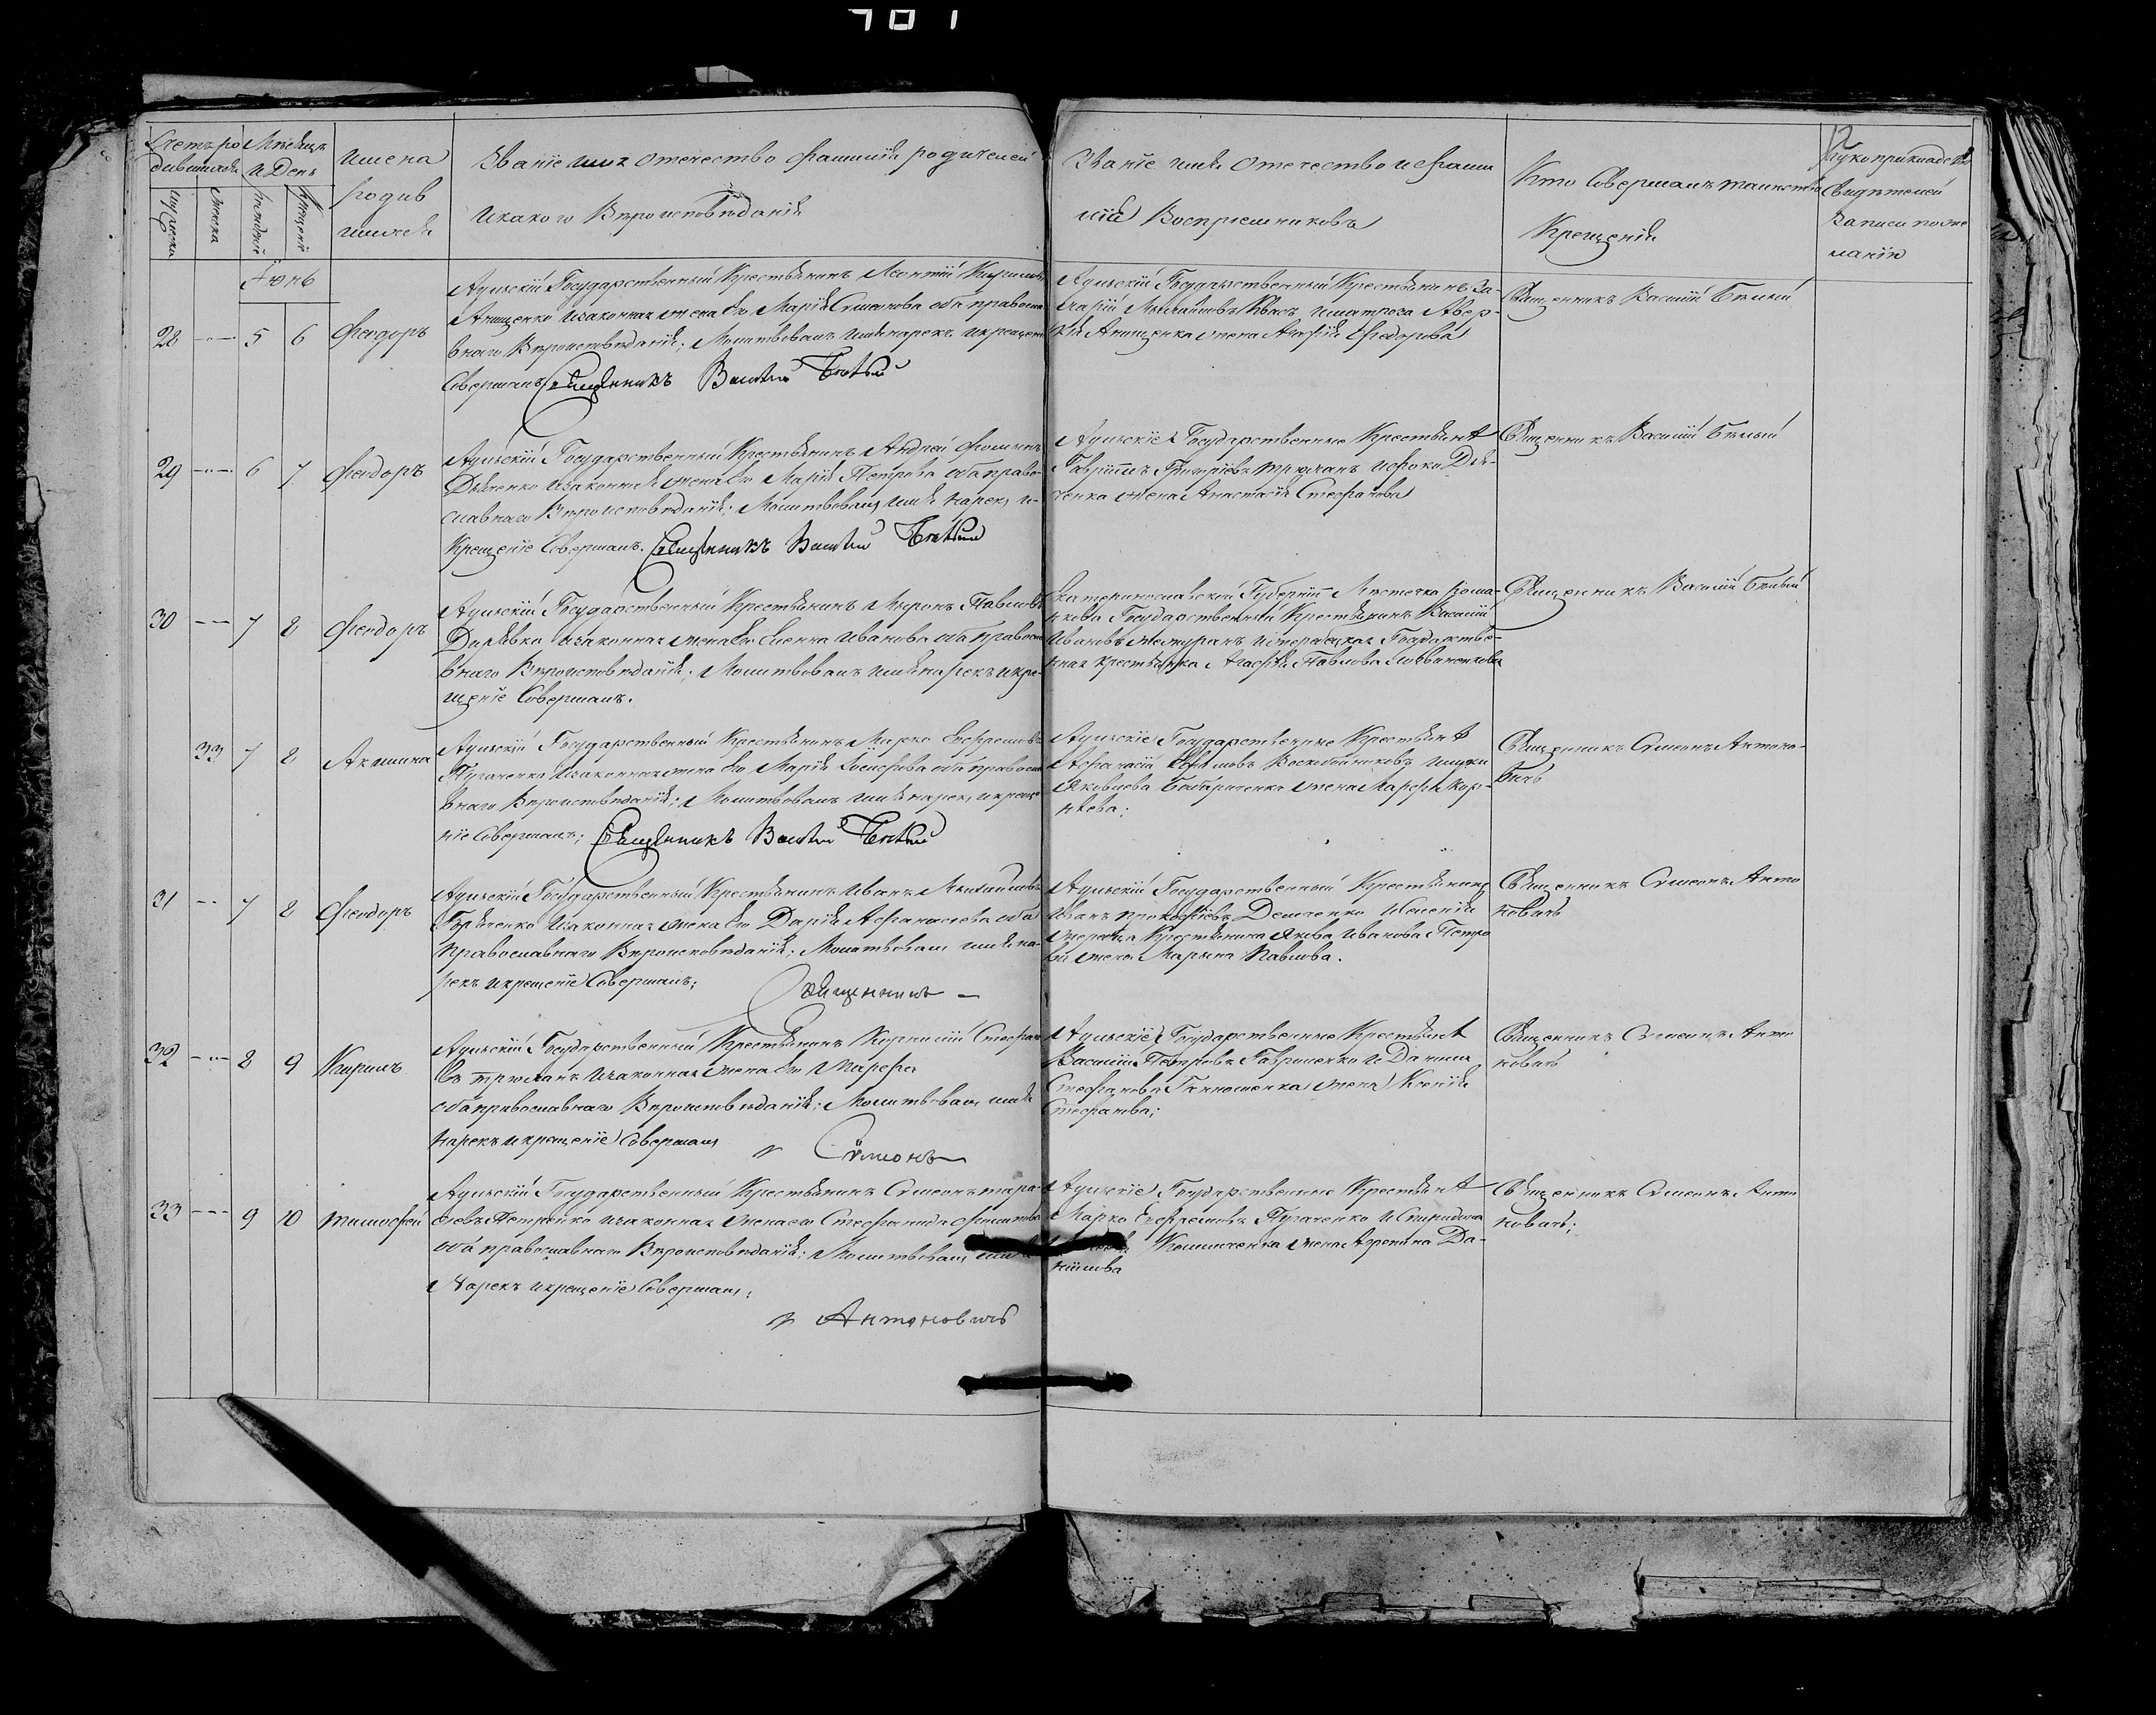 Счетъ ро
дившихся
Мѣсяцъ
и День
Имена
родив
шихся
Званіе имя отечество фамилія родителей
и какого Вѣроисповѣданія
Мужеска
Женска
Рожденіе
Крещеніе
Званіе имя отечество и фами
лія Воспріемниковъ
Кто Совершалъ таинство
Крещенія
12
Рукоприкладство
Свидѣтелей
Записи по же
ланію
Іюнь
28 5 6 Феодоръ
Государственный Крестьянинъ Леонтій Кириловъ
Анищенко и законная жена его Марія Симонова оба правосла
внаго Вѣроисповѣданія; Молитвовалъ имя нарекъ и крещеніе
Совершалъ Священникъ Василій Бѣлый
Государственный Крестьянинъ За-
харій Михайловъ Квасъ и матроса Авер-
кія Анищенка жена Агафія Федорова
Священникъ Василій Бѣлый
29 6 7 Феодоръ
Государственный Крестьянинъ Андрей Фоминъ
Дяченко и законная жена его Марія Петрова оба право-
славнаго Вѣроисповѣданія; Молитвовалъ имя нарекъ и
Крещеніе Совершалъ. Священникъ Василій Бѣлый
Государственные Крестьяне
Гавріилъ Григоріевъ и Фоки Дя-
ченка жена Анастасія Стефанова
Священникъ Василій Бѣлый
30 7 8 Феодоръ
Государственный Крестьянинъ Миронъ Павловъ
и законная жена его Елена Иванова оба правосла
внаго Вѣроисповѣданія; Молитвовалъ имя нарекъ и кре-
щеніе Совершалъ.
Екатеринославской Губерніи Мѣстечка Рома-
нкова Государственный Крестьянинъ Василій
Ивановъ Государстве-
нная крестьянка Агафія Павлова
Священникъ Василій Бѣлый
33 7 8 Акилина
Государственный Крестьянинъ Марко Евфремовъ
Пугаченко и законная жена его Марія Іосифова оба правосла
внаго Вѣроисповѣданія; Молитвовалъ имя нарекъ и креще
ніе Совершалъ; Священникъ Василій Бѣлый
Государственные Крестьяне
Афанасій Воскобойниковъ и Луки
Яковлева жена Марфа Кор-
нѣева;
Священникъ Симеонъ Антоно-
вичъ
31 7 8 Феодоръ
Государственный Крестьянинъ Иванъ Михайловъ
и законная жена его Дарія Афанасіева оба
православнаго Вѣроисповѣданія; Молитвовалъ имя на-
рекъ и крещеніе Совершалъ;
Священникъ —
Государственный Крестьянинъ
Иванъ Прокофіевъ Демченко
Крестьянина Якова Иванова Петро
ва жена Марина Павлова.
Священникъ Симеонъ Анто
новичъ
32 8 9 Кирилъ
Государственный Крестьянинъ Корнилій Стефано
въ и законная жена его Марфа
оба православнаго Вѣроисповѣданія; Молитвовалъ имя
нарекъ и крещеніе Совершалъ
Сѵмеонъ
Государственные Крестьяне
Василій Петровъ Гавриленко и Данила
Стефанова жена Ксенія
Стефанова;
Священникъ Симеонъ Анто
новичъ
33 9 10 Тимофей
Государственный Крестьянинъ Симеонъ Тара-
сіевъ Петренко и законная жена его Стефанида Филипова
оба православнаго Вѣроисповѣданія; Молитвовалъ имя
Нарекъ и крещеніе Совершалъ;
Антоновичъ
Государственные Крестьяне
Марко Евфремовъ Пугаченко и Спиридона
жена Да-
нилова
Священникъ Симеонъ Анто
новичъ;